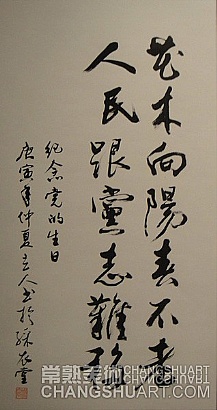 花木向陽春不老
人民跟黨志難移
紀念党的生日
庚寅年仲夏立人书於綵衣堂
常熟美术
CHANGSHUART